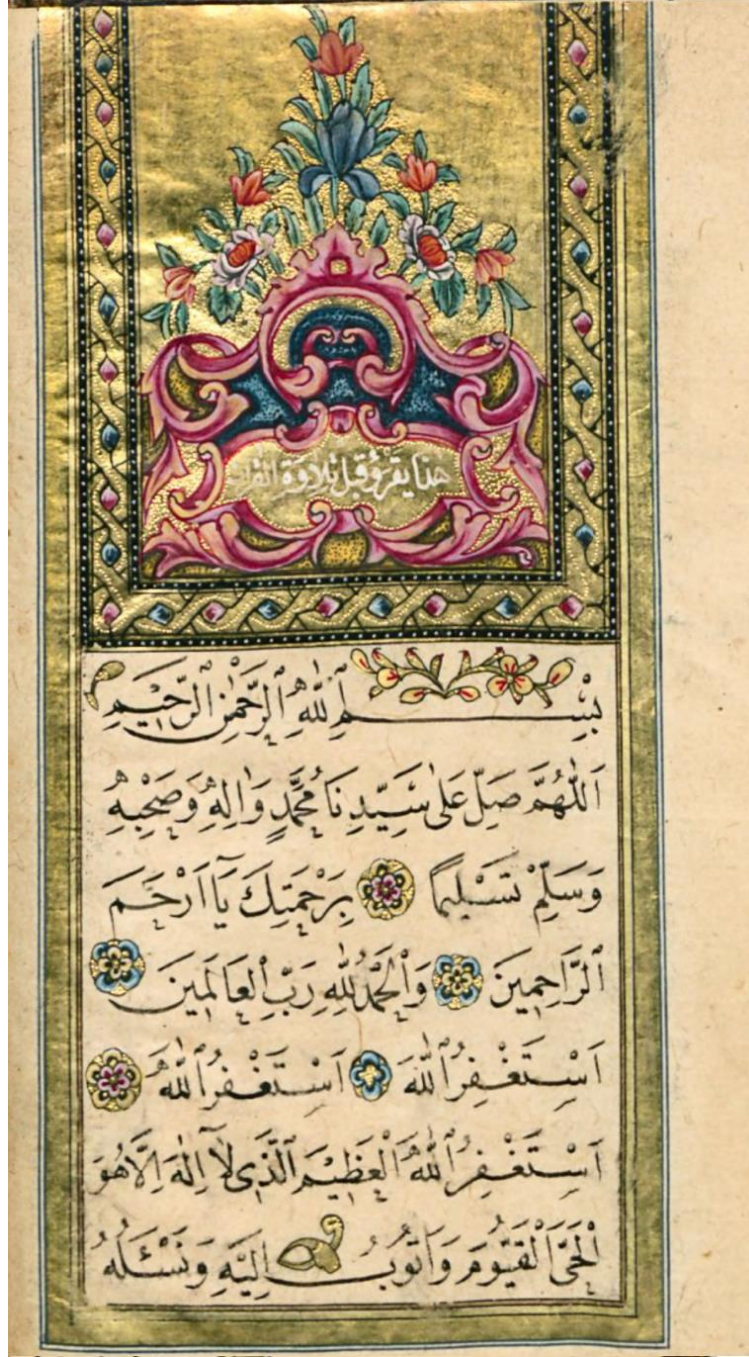 هذا يقرؤ قبل تلاوة القرآن
بِسْمِ ٱللّٰهِ ٱلرَّحْمٰنِ ٱلرَّحِيْمِ
اَللّٰهُمَّ صَلِّ عَلٰى سَيِّدِنَا مُحَمَّدٍ وَاٰلِهِ وَصَحْبِهِ
وَسَلِّمْ تَسْلِيمًا بِرَحْمَتِكَ يَآ اَرْحَمَ
ٱلرَّاحِمِينَ وَٱلْحَمْدُ لِلّٰهِ رَبِّ ٱلْعَالَمِينَ
اَسْتَغْفِرُ ٱللّٰهَ اَسْتَغْفِرُ ٱللّٰهَ
اَسْتَغْفِرُ ٱللّٰهَ ٱلْعَظِيْمَ ٱلَّذِى لَآ اِلٰهَ اِلَّا هُوَ
ٱلْحَىَّ ٱلْقَيُّومَ وَاَتُوبُ اِلَيْهِ وَنَسْئَلُهُ